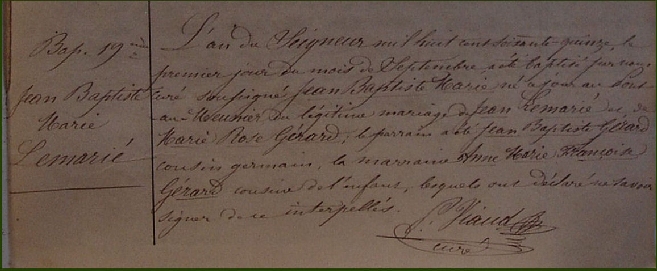 Bap. 19
Jean Baptiste
Marie
Lemarié
L'an du Seigneur mil huit cent soixante-quinze, le
premier jour du mois de Septembre a été baptisé par nous
curé soussigné Jean Baptiste Marie né ce jour au Pont
au Meunier du légitime mariage de Jean Lemarié et de
Marie Rose Gérard, le parrain a été Jean Baptiste Gérard
cousin germain, la marraine Anne Marie Françoise
Gérard cousine de l'enfant, lesquels ont déclaré ne savoir
signer de ce interpellés.
P. Viaud
curé